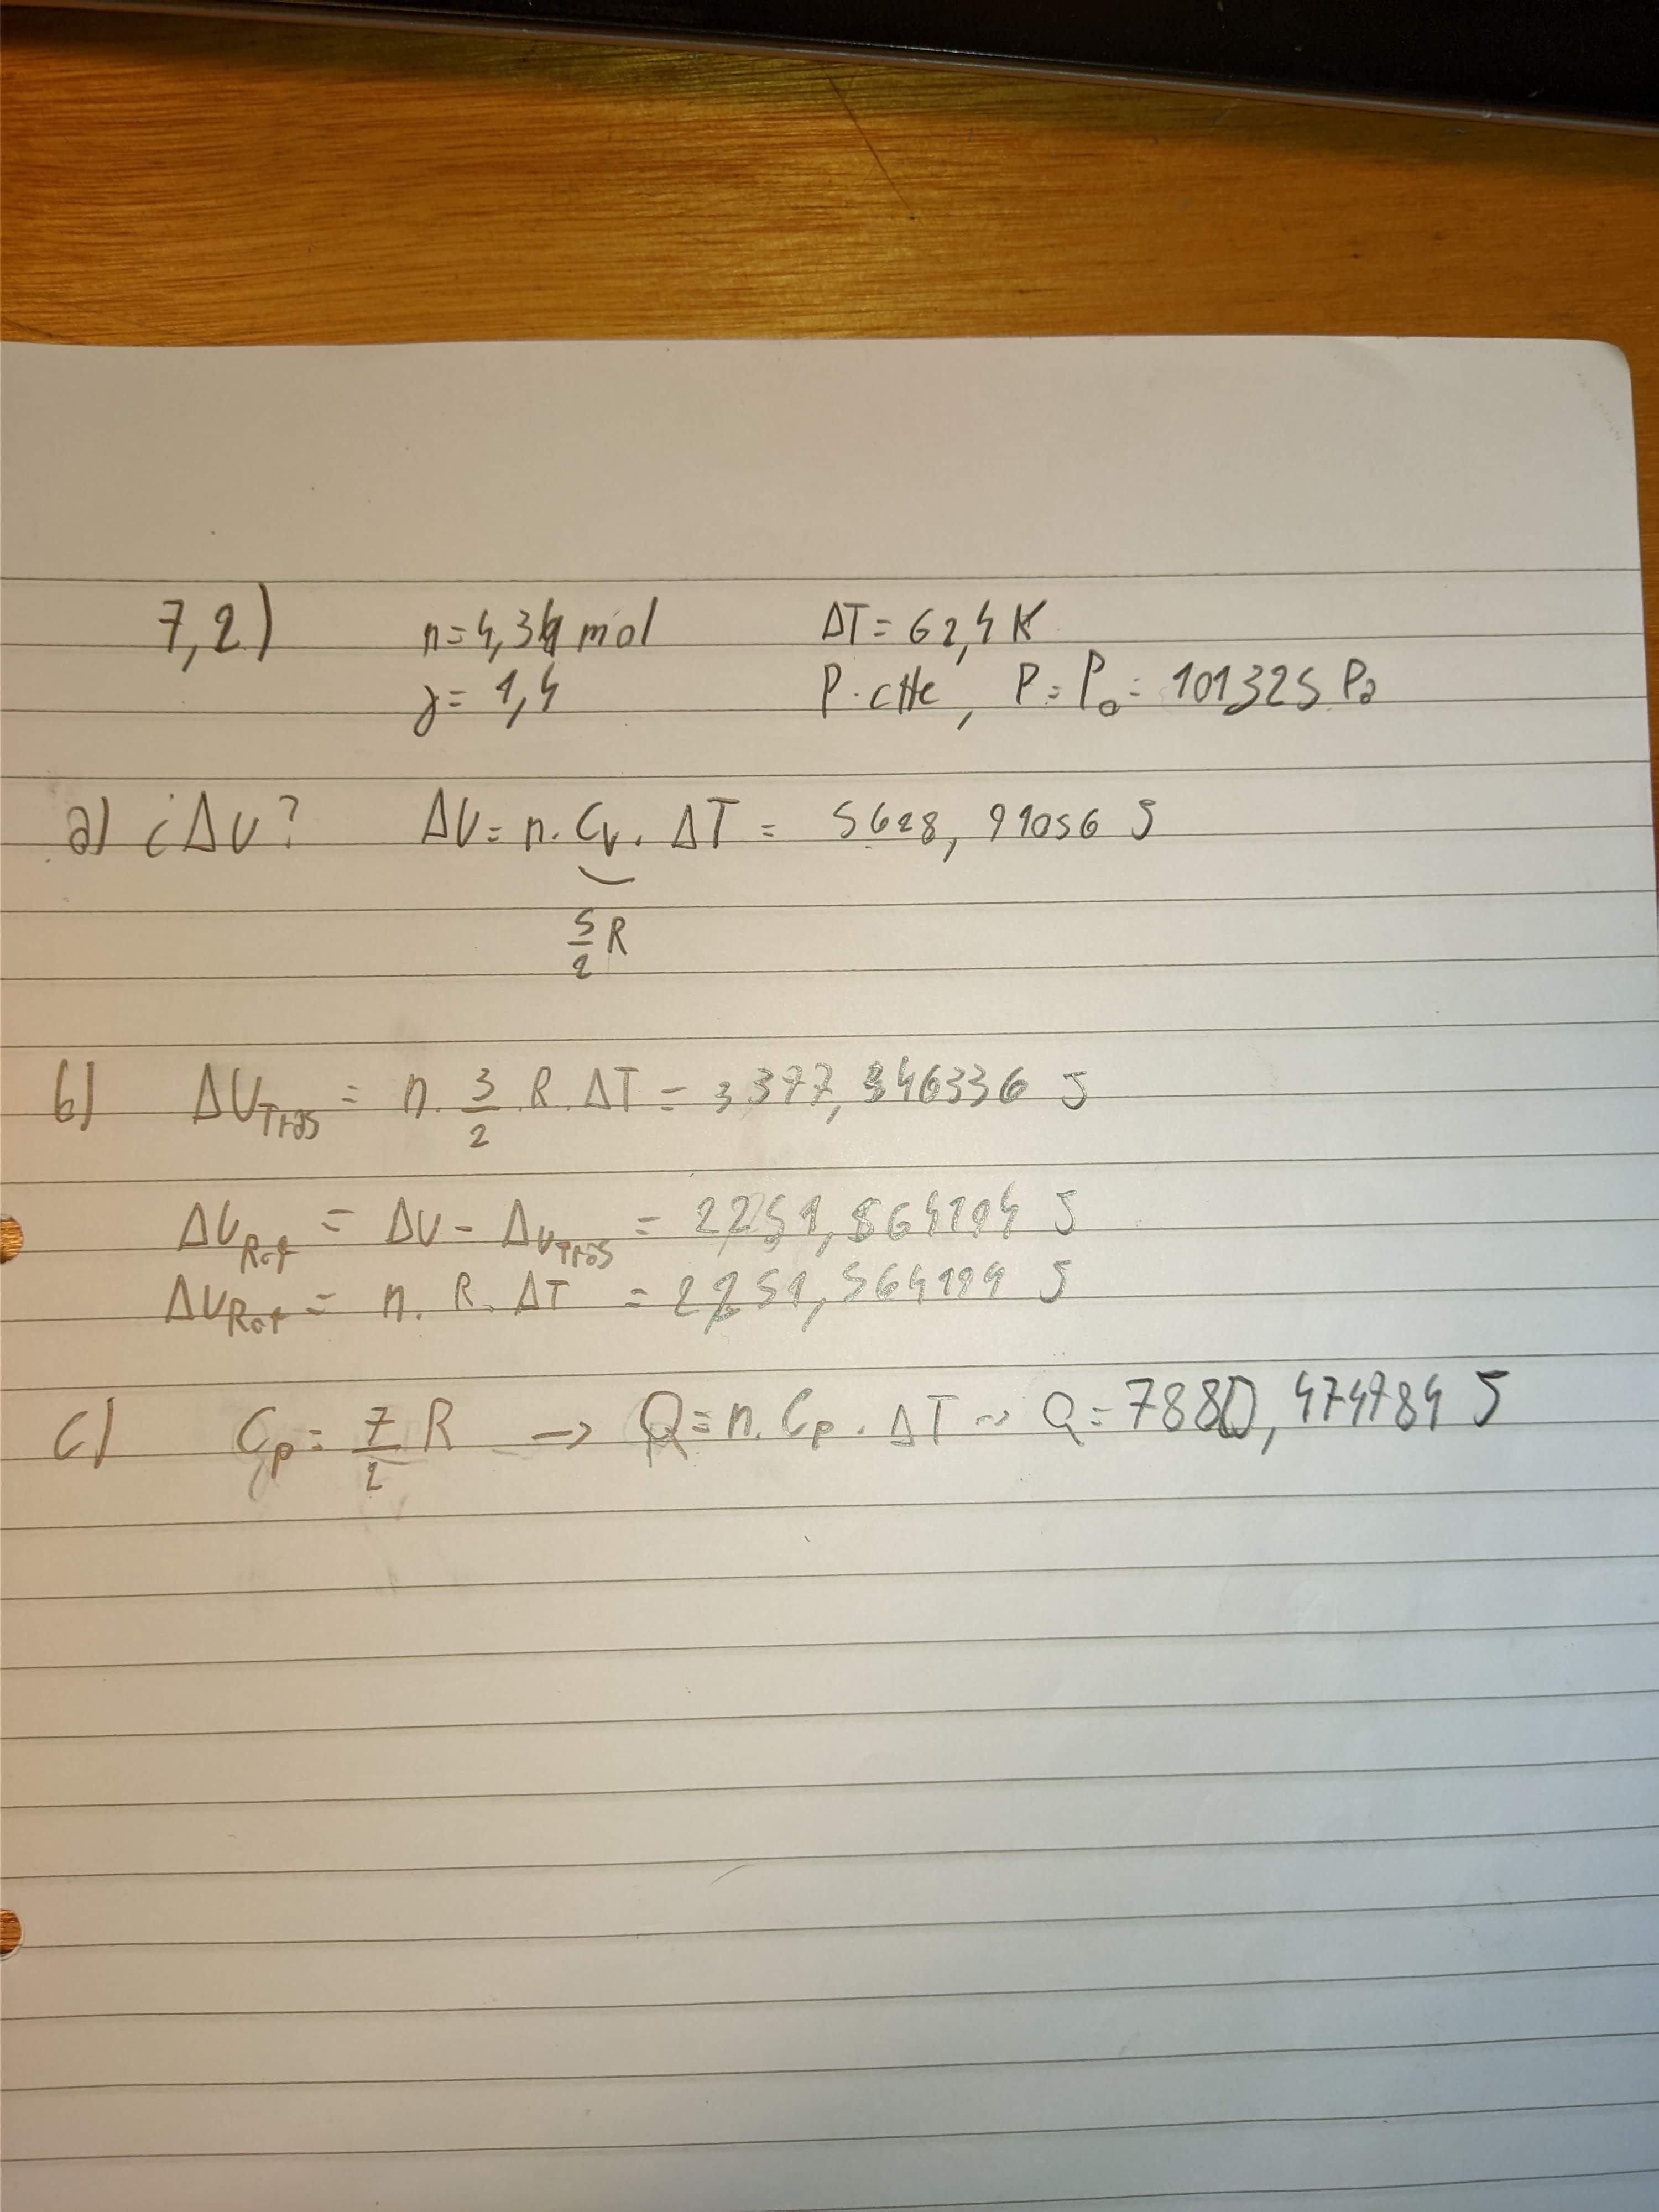 7,2) n=4,34 mol ΔT= 62,4 K
γ= 1,4 P.ctte, P=P₀= 101325 Pa
a) ¿ΔU? ΔU= n. Cv. ΔT = 5628, 91056 J
5/2 R
b) ΔU_Tras = n. 3/2 .R.ΔT = 3377, 346336 J
ΔU_Rot = ΔU - ΔU_Tras = 2251,564194 J
ΔU_Rot = n. R. ΔT = 2251,564194 J
c) Cp= 7/2 R → Q=n. Cp. ΔT ~> Q=7880, 474784 J